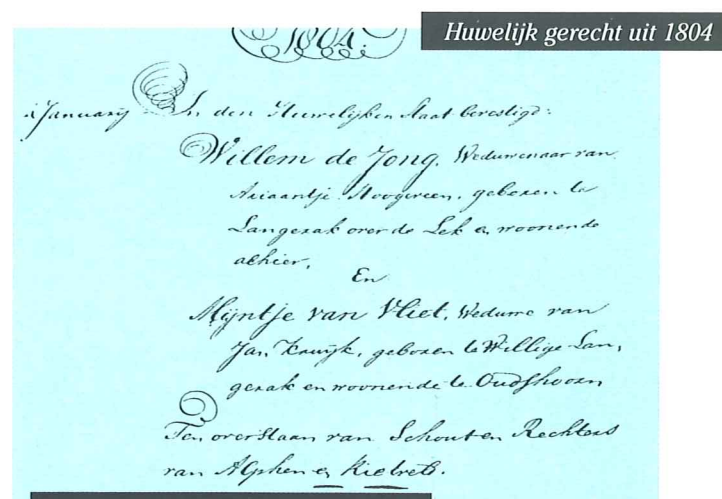 Huwelijk gerecht uit 1804
1804.
Januarij In den Huwelijken Staat bevestigd:
Willem de Jong, Weduwenaar van
Ariaantje Hoogveen, geboren te
Langerak over de Lek en woonende
alhier,
En
Mijntje van Vliet, Weduwe van
Jan Kruijk, geboren te Willige Lan,
gerak en woonende te Oudshoorn
Ten overstaan van Schout en Rechters
van Alphen en Rietvelt.